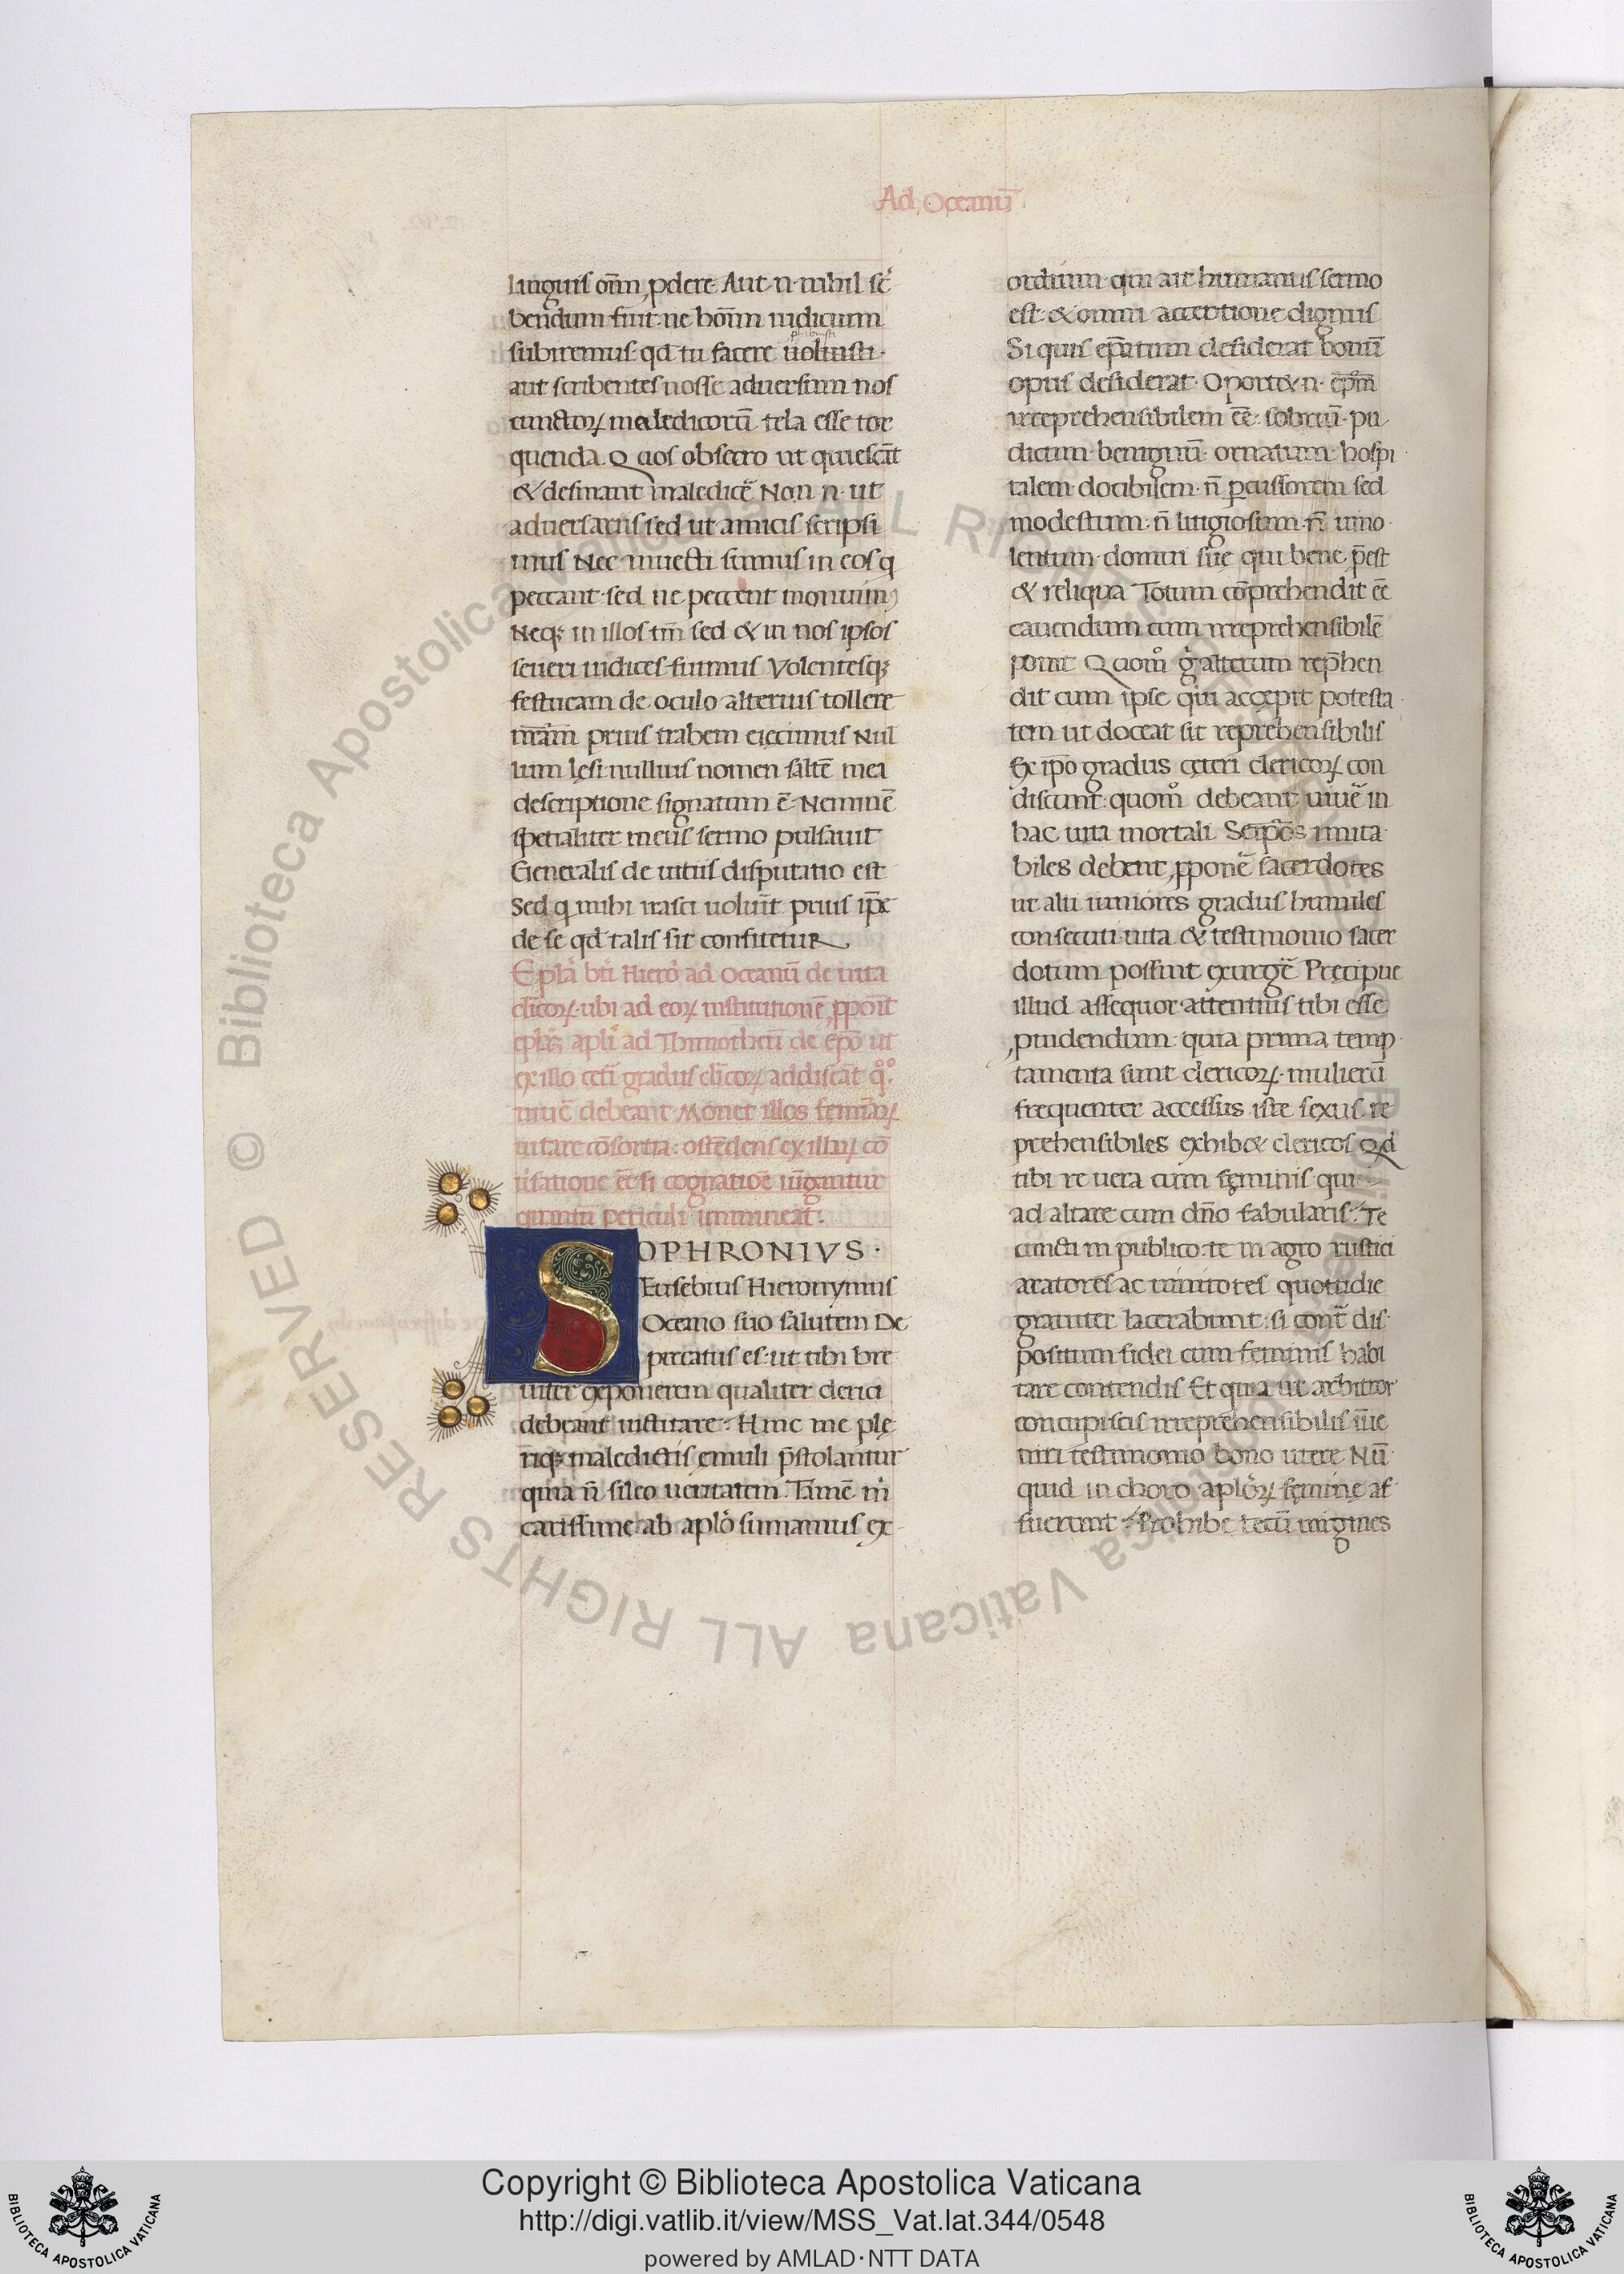 Ad Oceanū
linguis om̄n ꝓdere Aut·n·nihil sc̄
bendum fuit ne hom̄ iudicium
subiremus· qd tu facere uoluisti·
prohibuisti
aut scribentes nosse aduersum nos
cunctoꝝ maledicorū tela esse tor
quenda. Quos obsecro ut quiescāt
& desinant maledicē Non·n·ut
aduersariis sed ut amicis scripsi
mus Nec inuecti sumus in eos q
peccant· sed ne peccent monuimꝰ
Neqꝫ in illos tm̄ sed & in nos ipsos
seueri iudices fuimus Volentesqꝫ
festucam de oculo alterius tollere
nr̄am prius trabem eiecimus Nul
lum lęsi· nullius nomen saltē mea
descriptione signatum ē· Neminē
specialiter meus sermo pulsauit
Generalis de uitiis disputatio est
Sed q mihi irasci uoluit prius ip̄e
de se qd talis sit confitetur
Epla bti Hiero ad Oceanū de uita
clicoꝝ· ubi ad eoꝝ institutionē ꝓponit
eplas apli ad Thimotheū de epo ut
ex illo ceti gradus clicoꝝ addiscāt qo
uiuē debeant Monet illos feminaꝝ
uitare cōsortia: ostēdens ex illaꝝ cō
uersatione et si cognatiōe iūgantur
quantū periculi immineat.
SOPHRONIVS·
Eusebius Hieronymus
Oceano suo salutem De
precatus es· ut tibi bre
uiter exponerem qualiter clerici
debeant uistitare· Hinc me plę
riqꝫ maledictis emuli pr̄stolantur
quia n̄ sileo ueritatem. Tamē m̄
carissime ab aplo sumamus ex
ordium· qui ait humanus sermo
est· & omni acceptione dignus
Si quis ep̄atum desiderat bonū
opus desiderat· Oportet·n· ep̄m
irreprehensibilem ēē: sobriū· pu
dicum· benignū· ornatum· hospi
talem· docibilem· n̄ percussorem sed
modestum· n̄ litigiosum· n̄ uino
lentum· domui suę qui bene p̄est
& reliqua Totum cōprehendit ēē
cauendum cum irreprehensibilē
ponit Quom̊ g alterum rep̄hen
dit cum ipse qui accepit potesta
tem ut doceat sit reprehensibilis
Ex ip̄o gradus ceteri clericoꝝ con
discunt: quom̊ debeant uiuē in
hac uita mortali Seip̄os imita
biles debent ꝓponē sacerdotes
ut alii iuniores gradus humiles
consecuti uita & testimonio sacer
dotum possint exurgē Precipue
illud assequor attentius tibi esse
ꝓuidendum· quia prima temp
tamenta sunt clericoꝝ· mulierū
frequenter accessus iste sexus re
prehensibiles exhibet clericos Qd
tibi re uera cum feminis qui
ad altare cum dn̄o fabularis· Te
cuncti in publico· te in agro rustici
aratores ac uinitores quotidie
grauiter lacerabunt· si cont̄ dis
positum fidei cum feminis habi
tare contendis Et quia ut arbitror
concupiscis irreprehensibilis iue
niri testimonio bono utere Nū
quid in choro aploꝝ femine af
fuerunt· Prohibe tecū uirgines
© Biblioteca Apostolica Vaticana ALL RIGHTS RESERVED
Copyright © Biblioteca Apostolica Vaticana
http://digi.vatlib.it/view/MSS_Vat.lat.344/0548
powered by AMLAD·NTT DATA
BIBLIOTECA APOSTOLICA VATICANA
BIBLIOTECA APOSTOLICA VATICANA